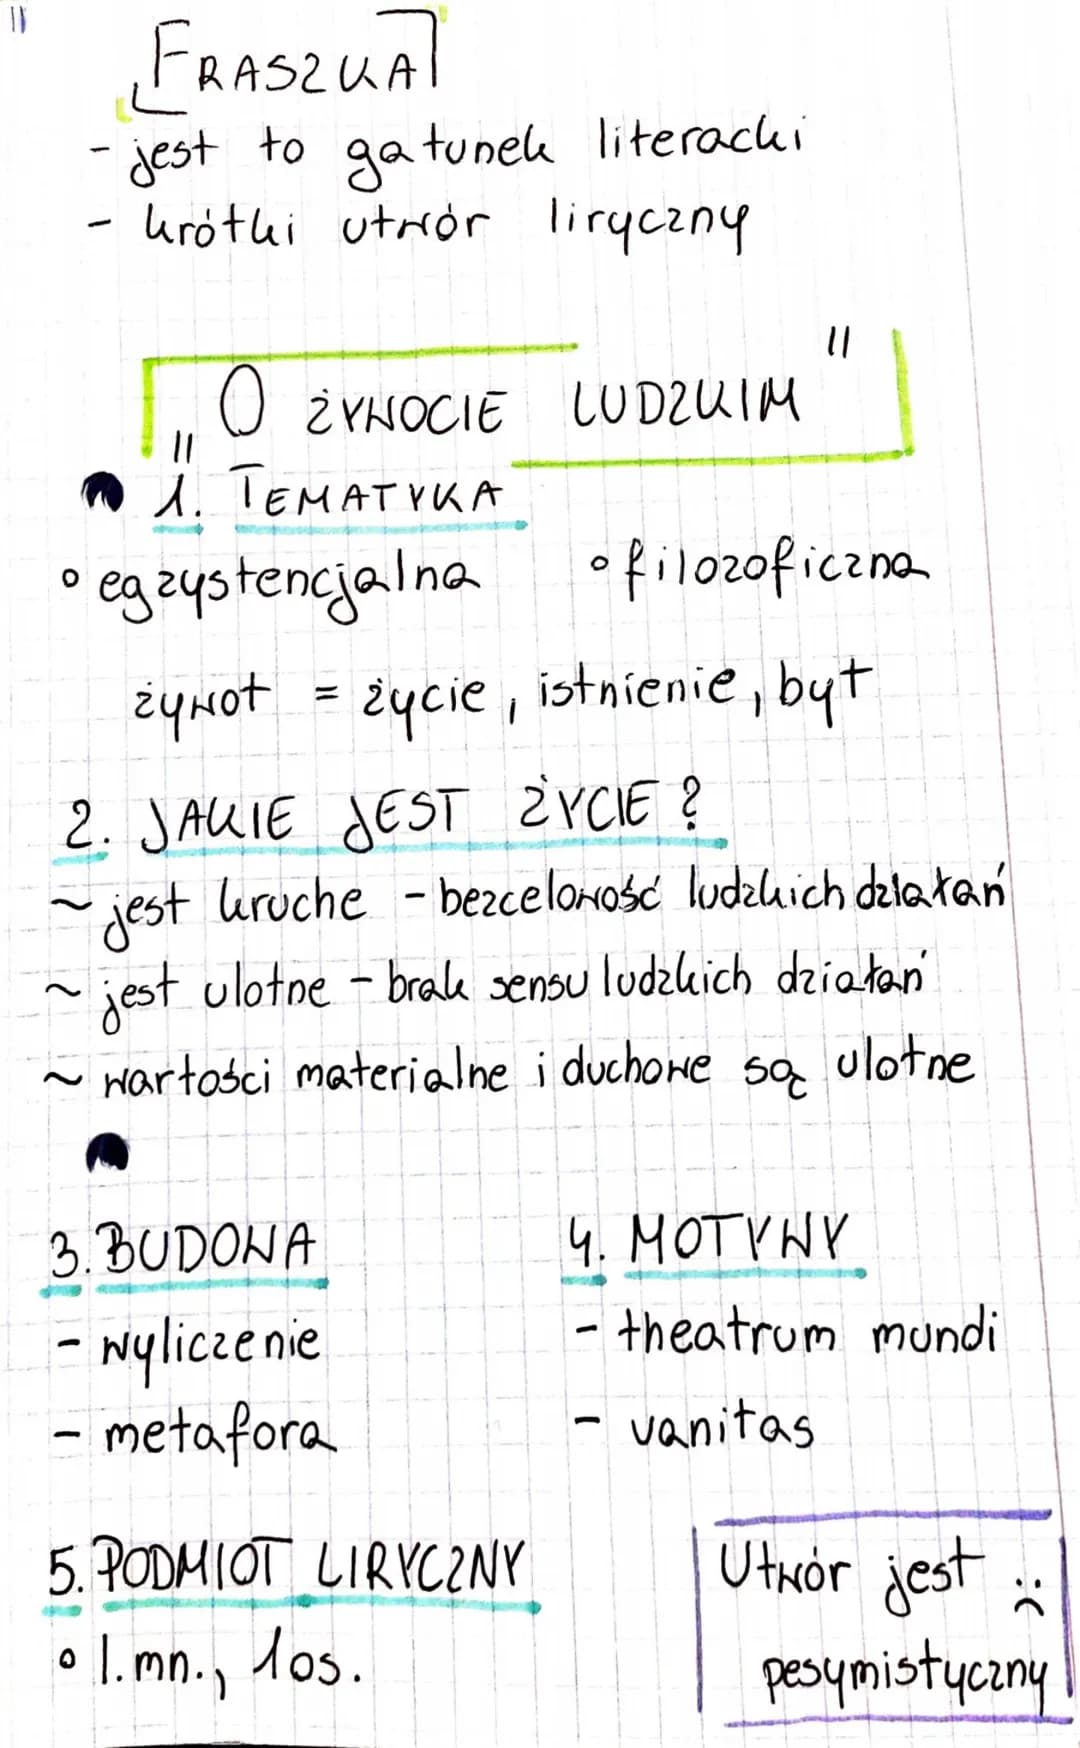 FRASZKA
- jest to gatunek literacki
- krótki utwór liryczny
„O ŻYWOCIE LUDZKIM"
1. TEMATYKA
° egzystencjalna ° filozoficzna
żywot = życie, istnienie, byt
2. JAKIE JEST ŻYCIE?
~ jest kruche - bezcelowość ludzkich działań
~ jest ulotne - brak sensu ludzkich działań
~ wartości materialne i duchowe są ulotne
3. BUDOWA
- wyliczenie
- metafora
4. MOTYWY
- theatrum mundi
- vanitas
5. PODMIOT LIRYCZNY
° l.mn., 1os.
Utwór jest :(
pesymistyczny